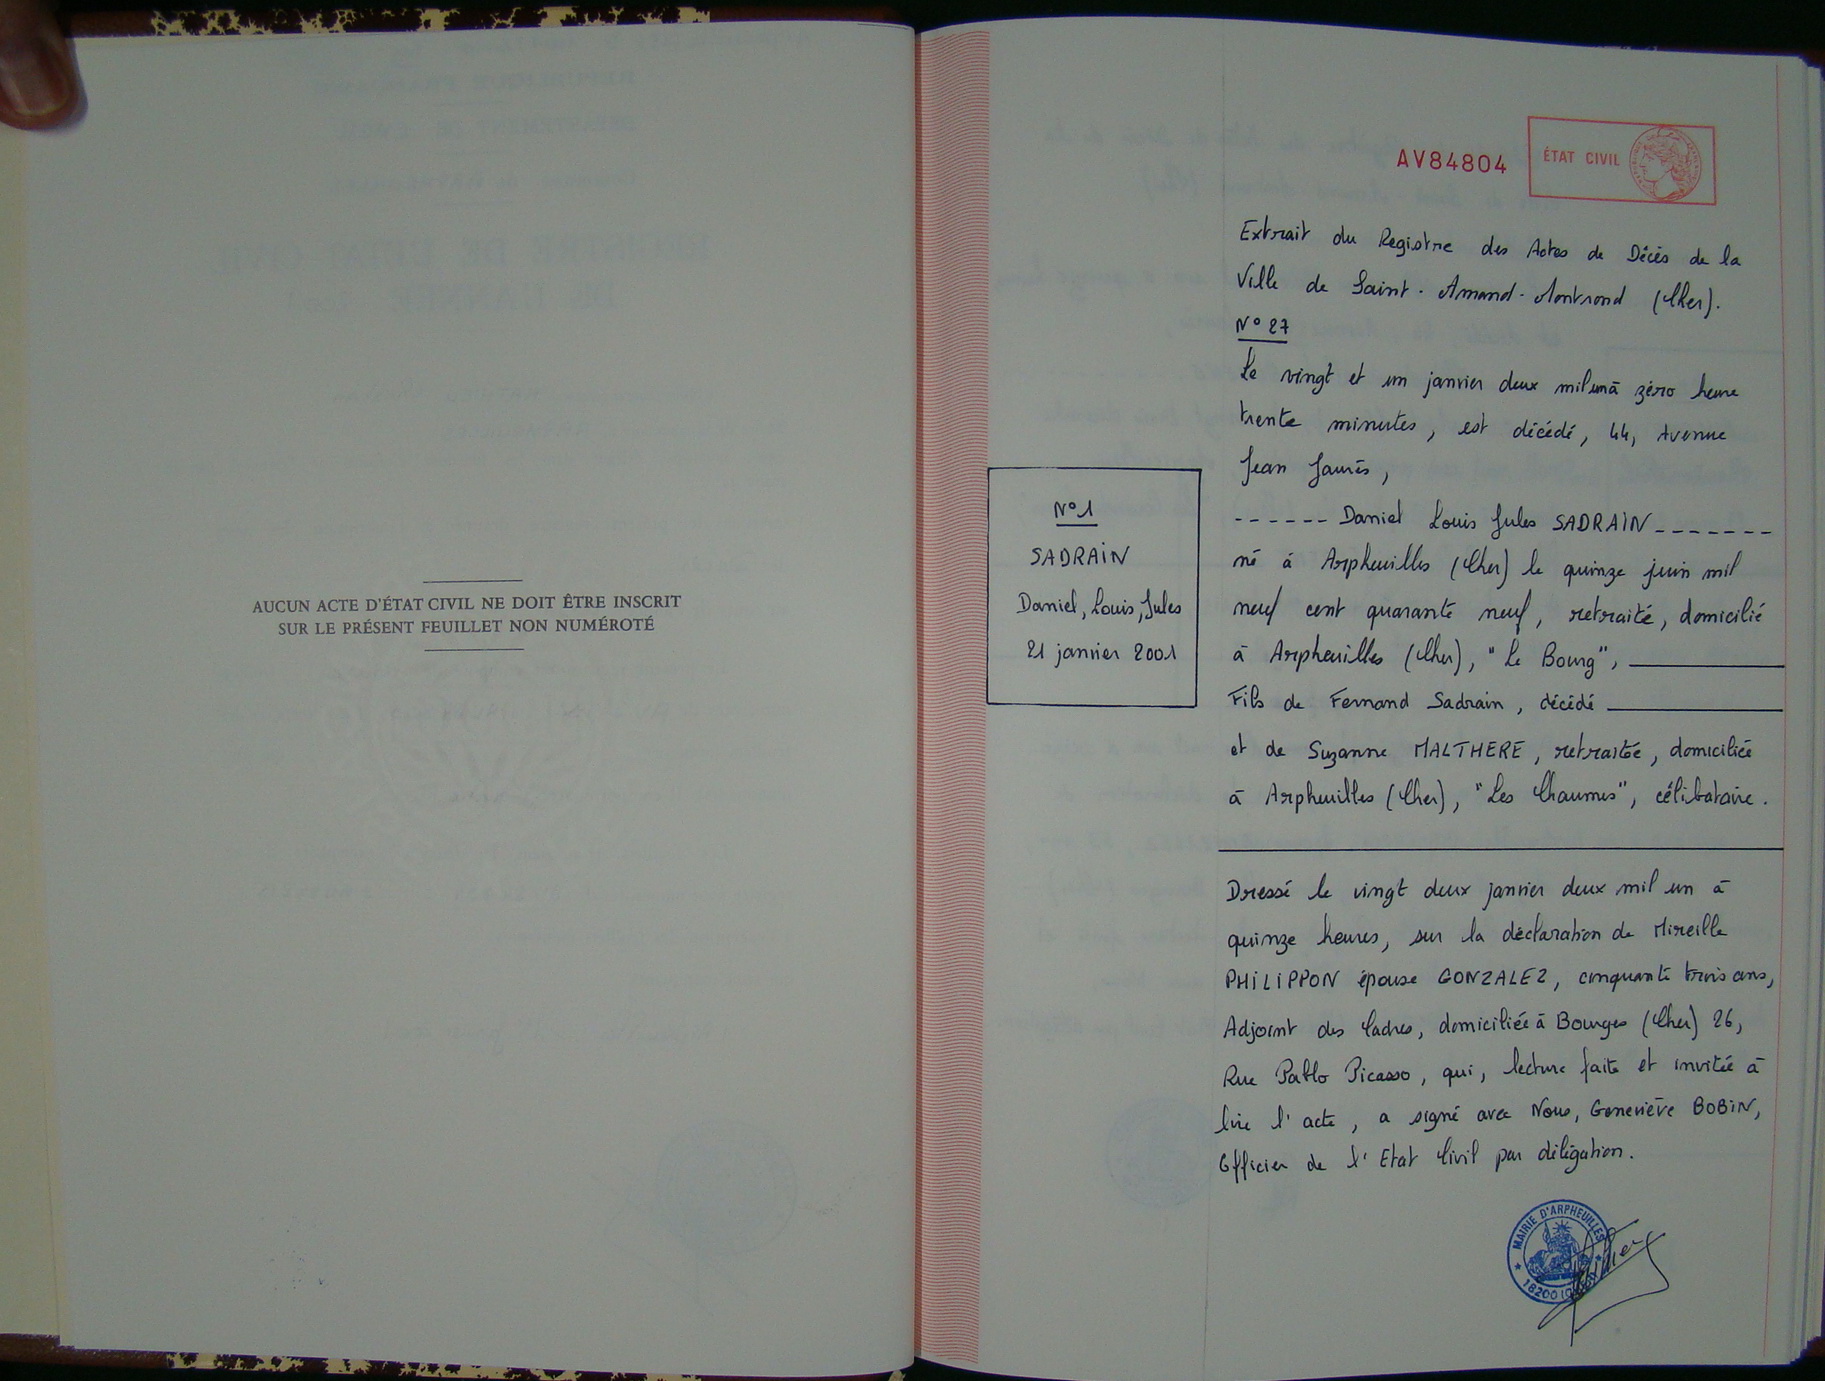 AUCUN ACTE D'ÉTAT CIVIL NE DOIT ÊTRE INSCRIT
SUR LE PRÉSENT FEUILLET NON NUMÉROTÉ
AV84804
ÉTAT CIVIL
Extrait du Registre des Actes de Décès de la
Ville de Saint-Amand-Montrond (Cher).
N° 27
Le vingt et un janvier deux mil un à zéro heure
trente minutes, est décédé, 44, Avenue
Jean Jaurès,
------ Daniel Louis Jules SADRAIN -------
né à Arpheuilles (Cher) le quinze juin mil
neuf cent quarante neuf, retraité, domicilié
à Arpheuilles (Cher), "Le Bourg",
Fils de Fernand Sadrain, décédé
et de Suzanne MALTHERE, retraitée, domiciliée
à Arpheuilles (Cher), "Les Chaumes", célibataire.
Dressé le vingt deux janvier deux mil un à
quinze heures, sur la déclaration de Mireille
PHILIPPON épouse GONZALEZ, cinquante trois ans,
Adjoint des Cadres, domiciliée à Bourges (Cher) 26,
Rue Pablo Picasso, qui, lecture faite et invitée à
lire l'acte, a signé avec Nous, Geneviève BOBIN,
Officier de l'Etat Civil par délégation.
N°1
SADRAIN
Daniel, Louis, Jules
21 janvier 2001
MAIRIE D'ARPHEUILLES
18200